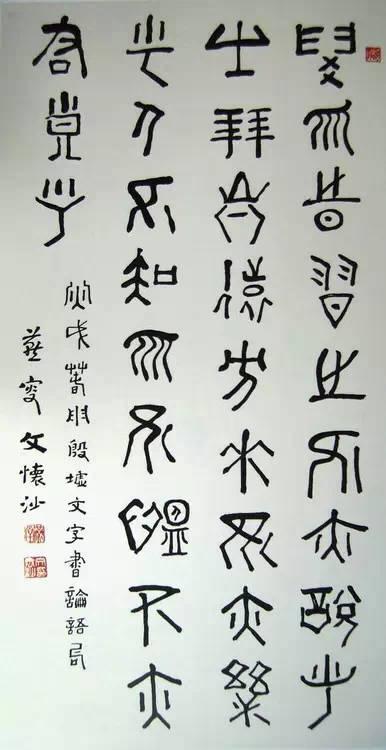 學而時習之不亦說乎
有朋自遠方來不亦樂
乎人不知而不慍不亦
君子乎
殷墟文字書論語句
燕叟文懷沙